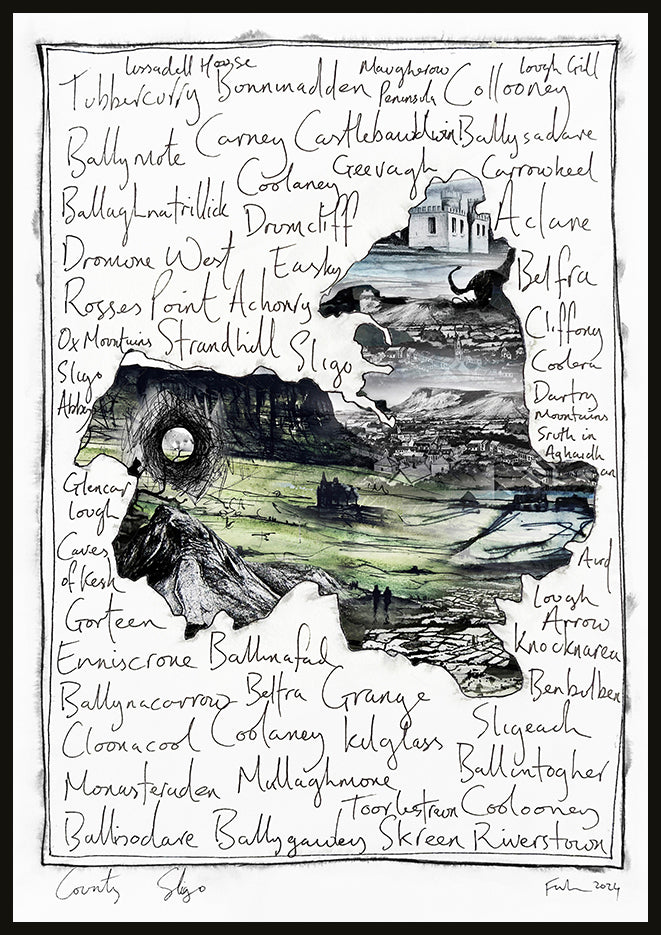 Lissadell House Maugherow Peninsula Lough Gill
Tubbercurry Bunninadden Collooney
Ballymote Carney Castlebawdwin Ballysadare
Coolaney Geevagh Carrowkeel
Ballaghnatrillick Drumcliff Aclare
Dromore West Easky Belfra
Rosses Point Achonry Cliffony
Ox Mountains Strandhill Sligo Coolera
Sligo Abbey
Dartry Mountains
Sruth in Aghaidh an Aird
Glencar Lough
Caves of Kesh
Lough Arrow
Gorteen Knocknarea
Enniscrone Ballinafad
Benbulben
Ballynacarrow Beltra Grange
Sligeach
Cloonacool Coolaney Kilglass
Ballintogher
Monasteraden Mullaghmore
Toorlestraun Coolooney
Ballisodare Ballygawley Skreen Riverstown
County Sligo
2024